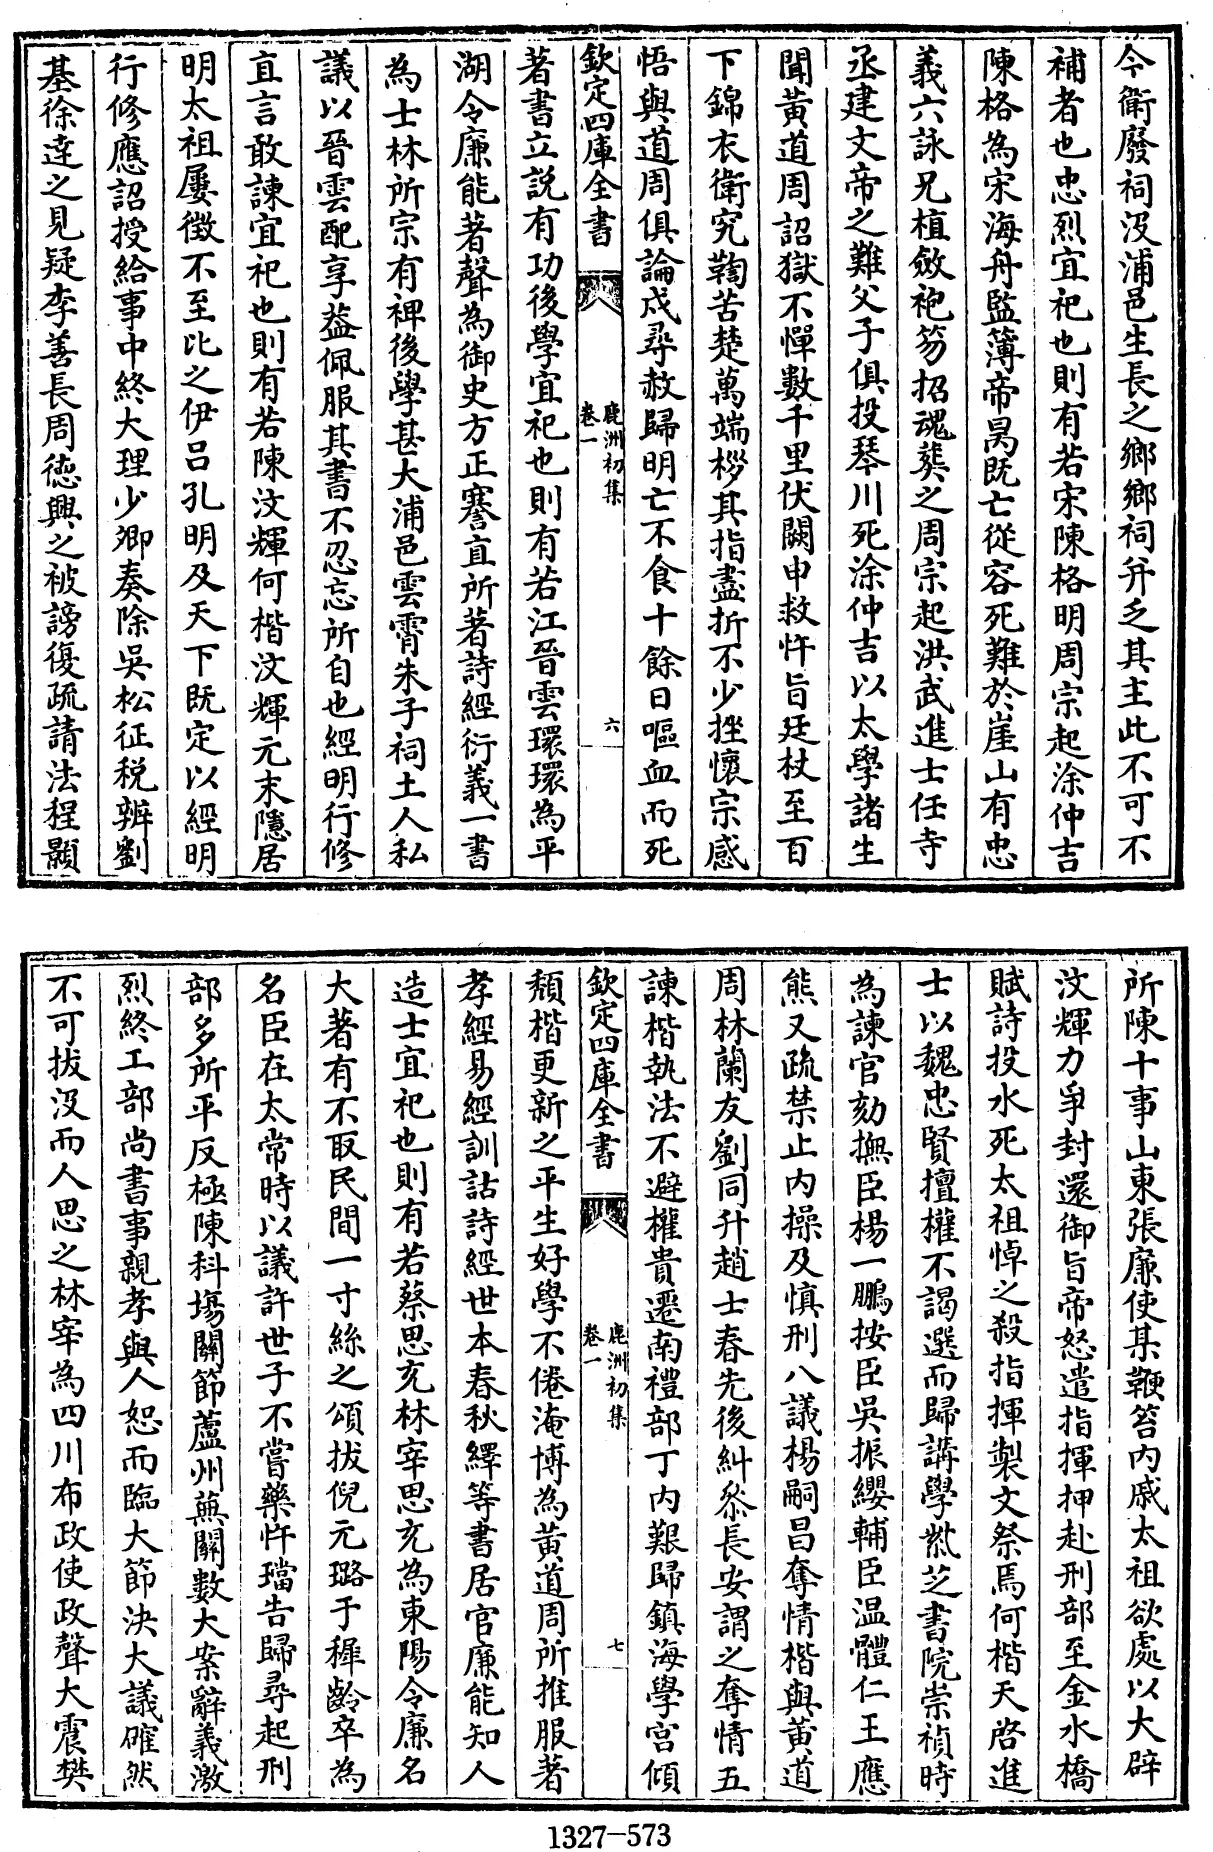 今衛廢祠沒浦邑生長之鄉鄉祠并乏其主此不可不
補者也忠烈宜祀也則有若宋陳格明周宗起涂仲吉
陳格為宋海舟監簿帝昺既亡從容死難於崖山有忠
義六詠兄植斂袍笏招魂葬之周宗起洪武進士任寺
丞建文帝之難父子俱投琴川死涂仲吉以太學諸生
聞黃道周詔獄不憚數千里伏闕申救忤旨廷杖至百
下錦衣衛究鞫苦楚萬端桚其指盡折不少挫懷宗感
悟與道周俱論戍尋赦歸明亡不食十餘日嘔血而死
欽定四庫全書
鹿洲初集
卷一
六
著書立說有功後學宜祀也則有若江晉雲環環為平
湖令廉能著聲為御史方正謇直所著詩經衍義一書
為士林所宗有裨後學甚大浦邑雲霄朱子祠土人私
議以晉雲配享葢佩服其書不忍忘所自也經明行修
直言敢諫宜祀也則有若陳汶輝何楷汶輝元末隱居
明太祖屢徵不至比之伊呂孔明及天下既定以經明
行修應詔授給事中終大理少卿奏除吳松征稅辨劉
基徐達之見疑李善長周德興之被謗復疏請法程顥
所陳十事山東張廉使某鞭笞內戚太祖欲處以大辟
汶輝力爭封還御旨帝怒遣指揮押赴刑部至金水橋
賦詩投水死太祖悼之殺指揮製文祭焉何楷天啓進
士以魏忠賢擅權不謁選而歸講學紫芝書院崇禎時
為諫官劾撫臣楊一鵬按臣吳振纓輔臣溫體仁王應
熊又疏禁止內操及慎刑八議楊嗣昌奪情楷與黃道
周林蘭友劉同升趙士春先後糾叅長安謂之奪情五
諫楷執法不避權貴遷南禮部丁內艱歸鎮海學宮傾
欽定四庫全書
鹿洲初集
卷一
七
頹楷更新之平生好學不倦淹博為黃道周所推服著
孝經易經訓詁詩經世本春秋繹等書居官廉能知人
造士宜祀也則有若蔡思充林宰思充為東陽令廉名
大著有不取民間一寸絲之頌拔倪元璐于穉齡卒為
名臣在太常時以議許世子不嘗藥忤璫告歸尋起刑
部多所平反極陳科塲關節蘆州蕪關數大案辭義激
烈終工部尚書事親孝與人恕而臨大節決大議確然
不可拔沒而人思之林宰為四川布政使政聲大震樊
1327-573